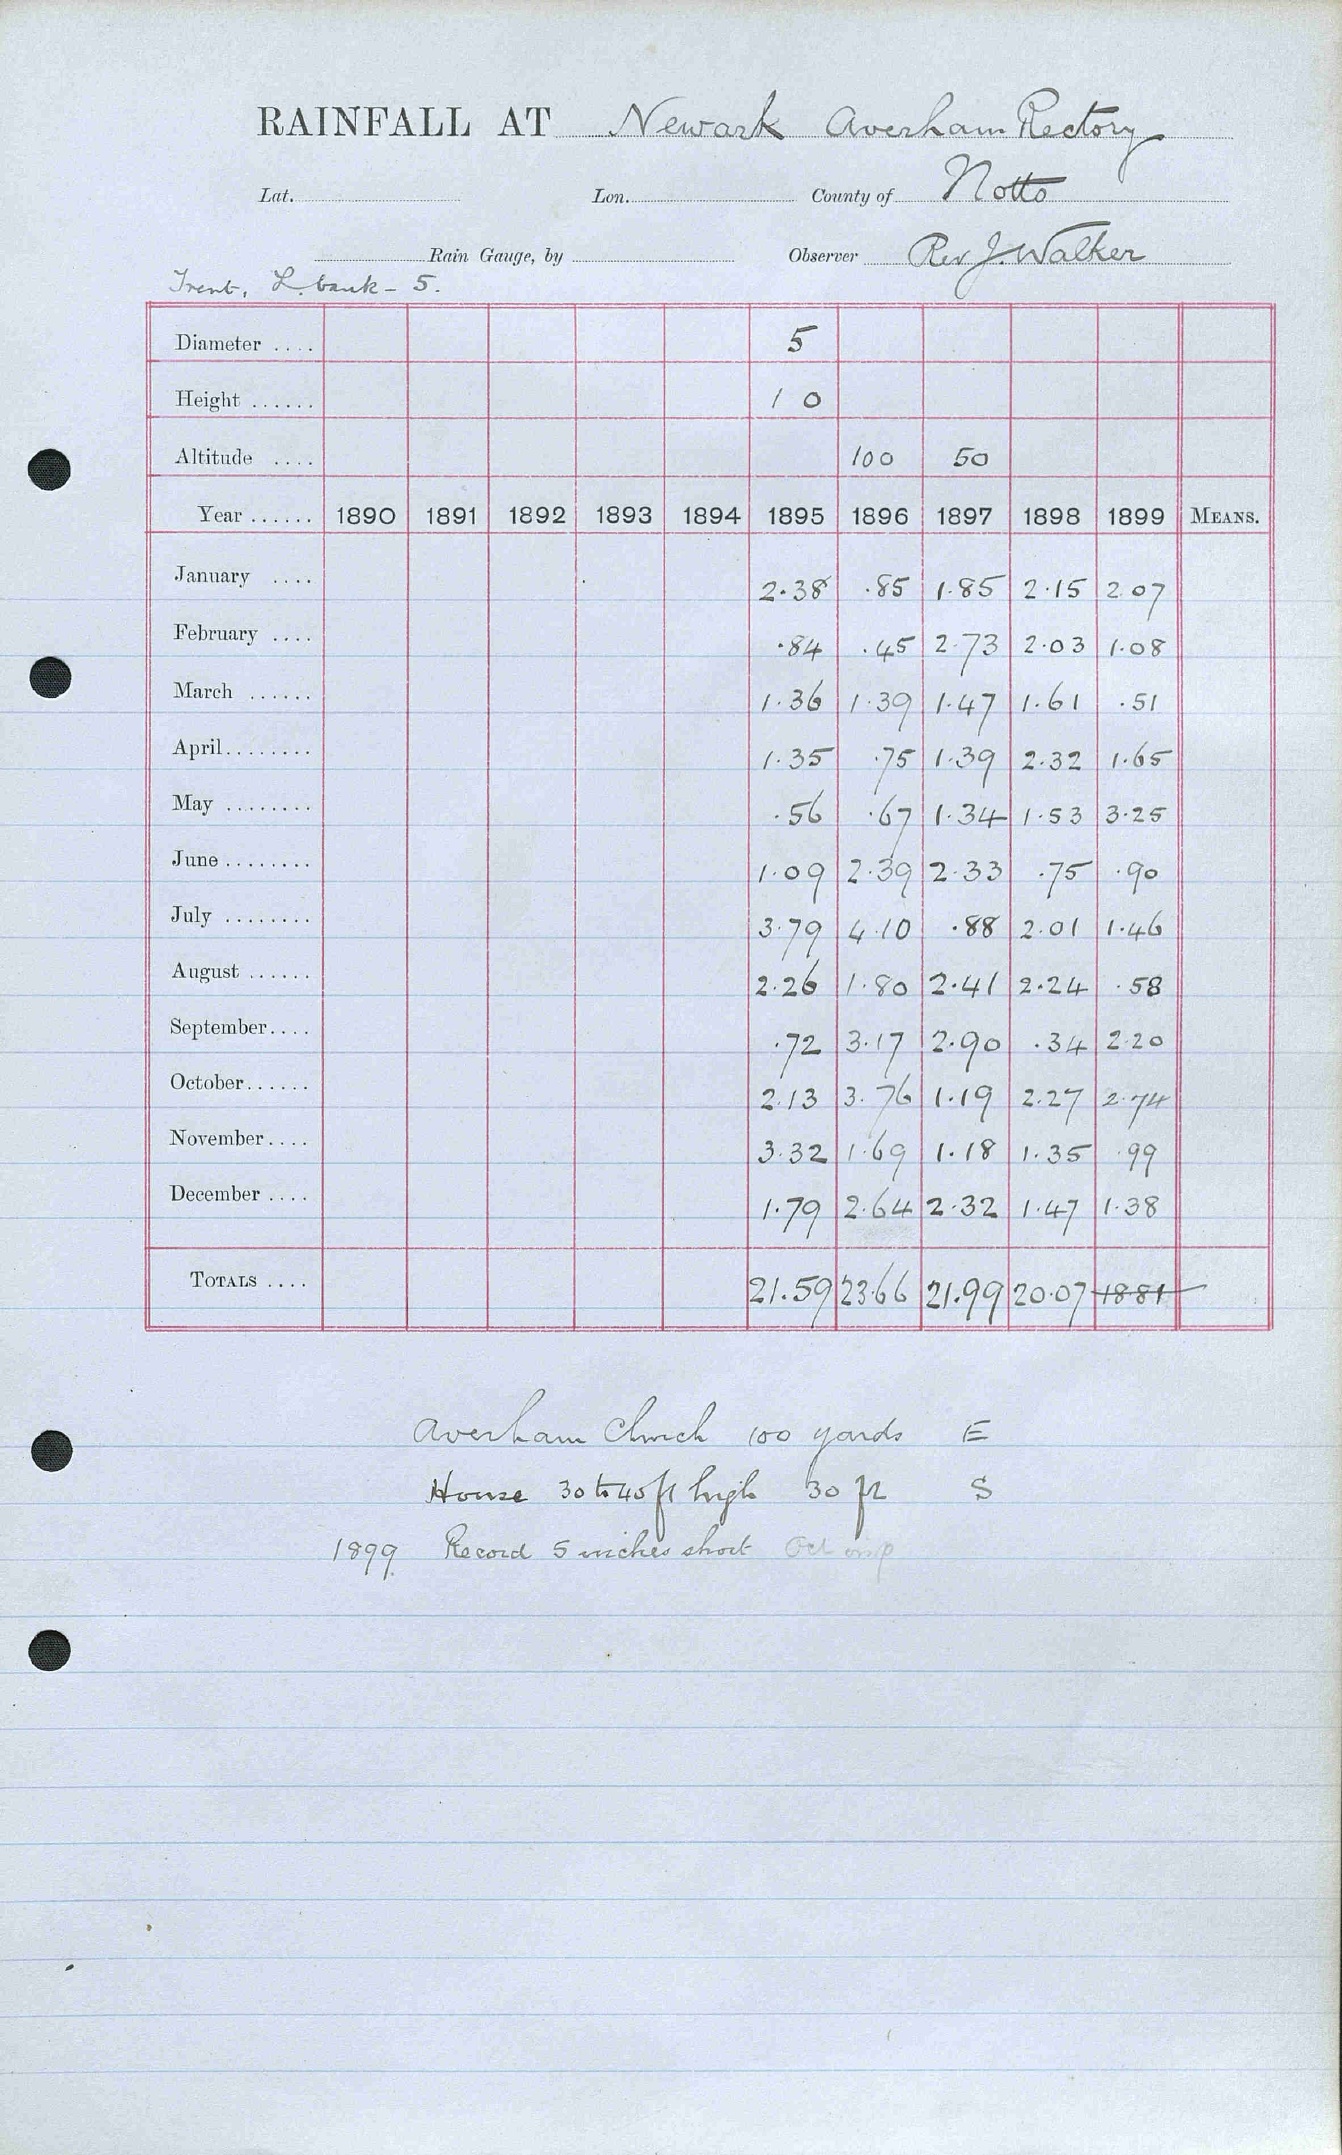 RAINFALL AT Newark Averham Rectory
Lat. Lon. County of Notts
Rain Gauge, by Observer Rev J. Walker
Trent, L. bank - 5.
Diameter .... 5
Height ...... 1 0
Altitude .... 100 50
Year ...... 1890 1891 1892 1893 1894 1895 1896 1897 1898 1899 MEANS.
January .... 2.38 .85 1.85 2.15 2.07
February .... .84 .45 2.73 2.03 1.08
March ...... 1.36 1.39 1.47 1.61 .51
April........ 1.35 .75 1.39 2.32 1.65
May ........ .56 .67 1.34 1.53 3.25
June ........ 1.09 2.39 2.33 .75 .90
July ........ 3.79 4.10 .88 2.01 1.46
August ...... 2.26 1.80 2.41 2.24 .58
September.... .72 3.17 2.90 .34 2.20
October...... 2.13 3.76 1.19 2.27 2.74
November.... 3.32 1.69 1.18 1.35 .99
December .... 1.79 2.64 2.32 1.47 1.38
TOTALS .... 21.59 23.66 21.99 20.07 18.81
Averham Church 100 yards E
House 30 to 40 ft high 30 ft S
1899 Record 5 inches short Oct